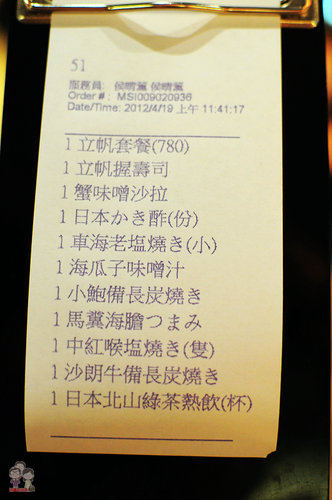 51
服務員:
Order #: MSI009020936
Date/Time: 2012/4/19 上午 11:41:17
1 立帆套餐(780)
1 立帆握壽司
1 蟹味噌沙拉
1 日本かき酢(份)
1 車海老塩燒き(小)
1 海瓜子味噌汁
1 小鮑備長炭燒き
1 馬糞海膽つまみ
1 中紅喉塩燒き(隻)
1 沙朗牛備長炭燒き
1 日本北山綠茶熱飲(杯)